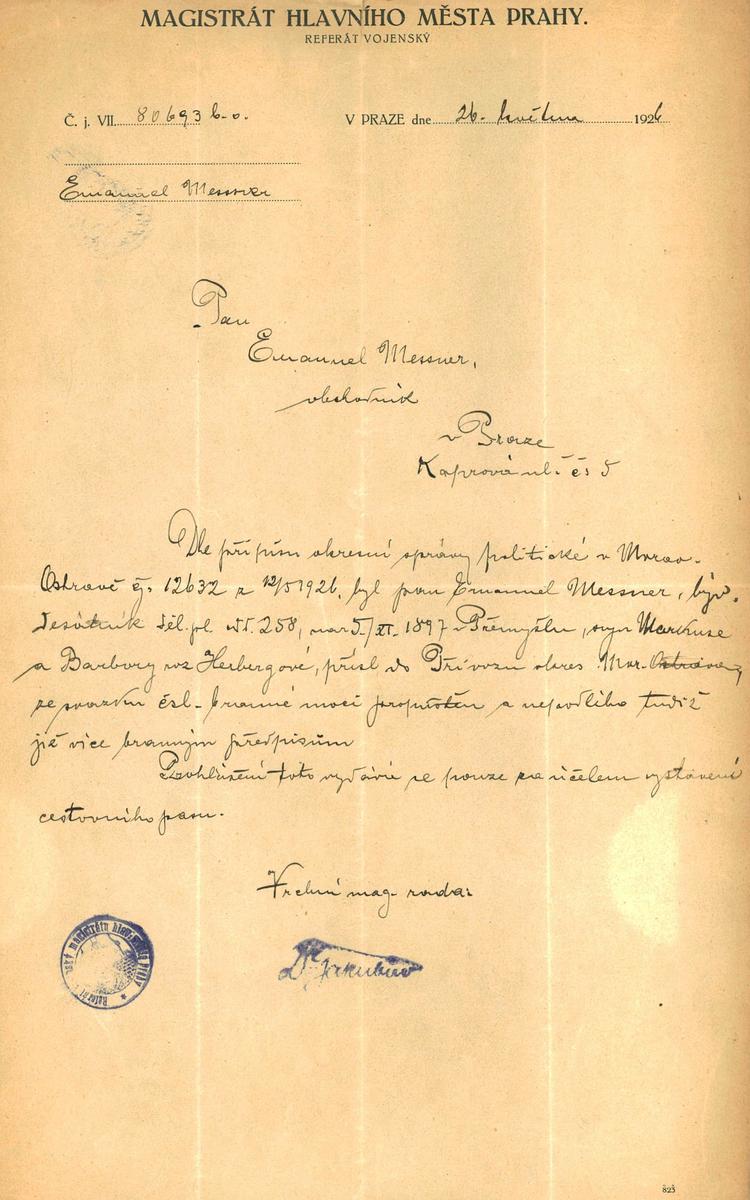 MAGISTRÁT HLAVNÍHO MĚSTA PRAHY.
REFERÁT VOJENSKÝ
Č. j. VII. 80693 b.o.
V PRAZE dne 26. května 1926
Emanuel Messner
Pan
Emanuel Messner,
obchodník
v Praze
Kaprová ul. čs 5
Dle přípisu okresní správy politické v Morav.
Ostravě čj. 12632 z 12/5 1926, byl pan Emanuel Messner, býv.
desátník děl. pl. čt. 258, nar. 5/XI. 1897 v Přemyšlu, syn Markuse
a Barbory roz Herbergové, přísl do Přívozu okres Mor. Ostrava,
ze svazku čsl. branné moci propuštěn a nepodléhá tudíž
již více branným předpisům
Prohlášení toto vydává se pouze za účelem vystavení
cestovního pasu.
Vrchní mag. rada:
magistrátu hlav. města Prahy
823